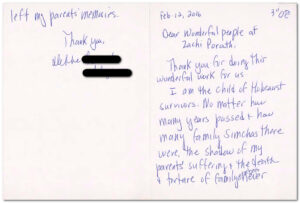 Feb 12, 2016
Dear Wonderful people at
Zachi Porath.
Thank you for doing this
wonderful work for us.
I am the child of Holocaust
survivors. No matter how
many years passed & how
many family Simchas there
were, the shadow of my
parents' suffering & the death
& torture of family never
left my parents' memoirs.
Thank you,
Debbie